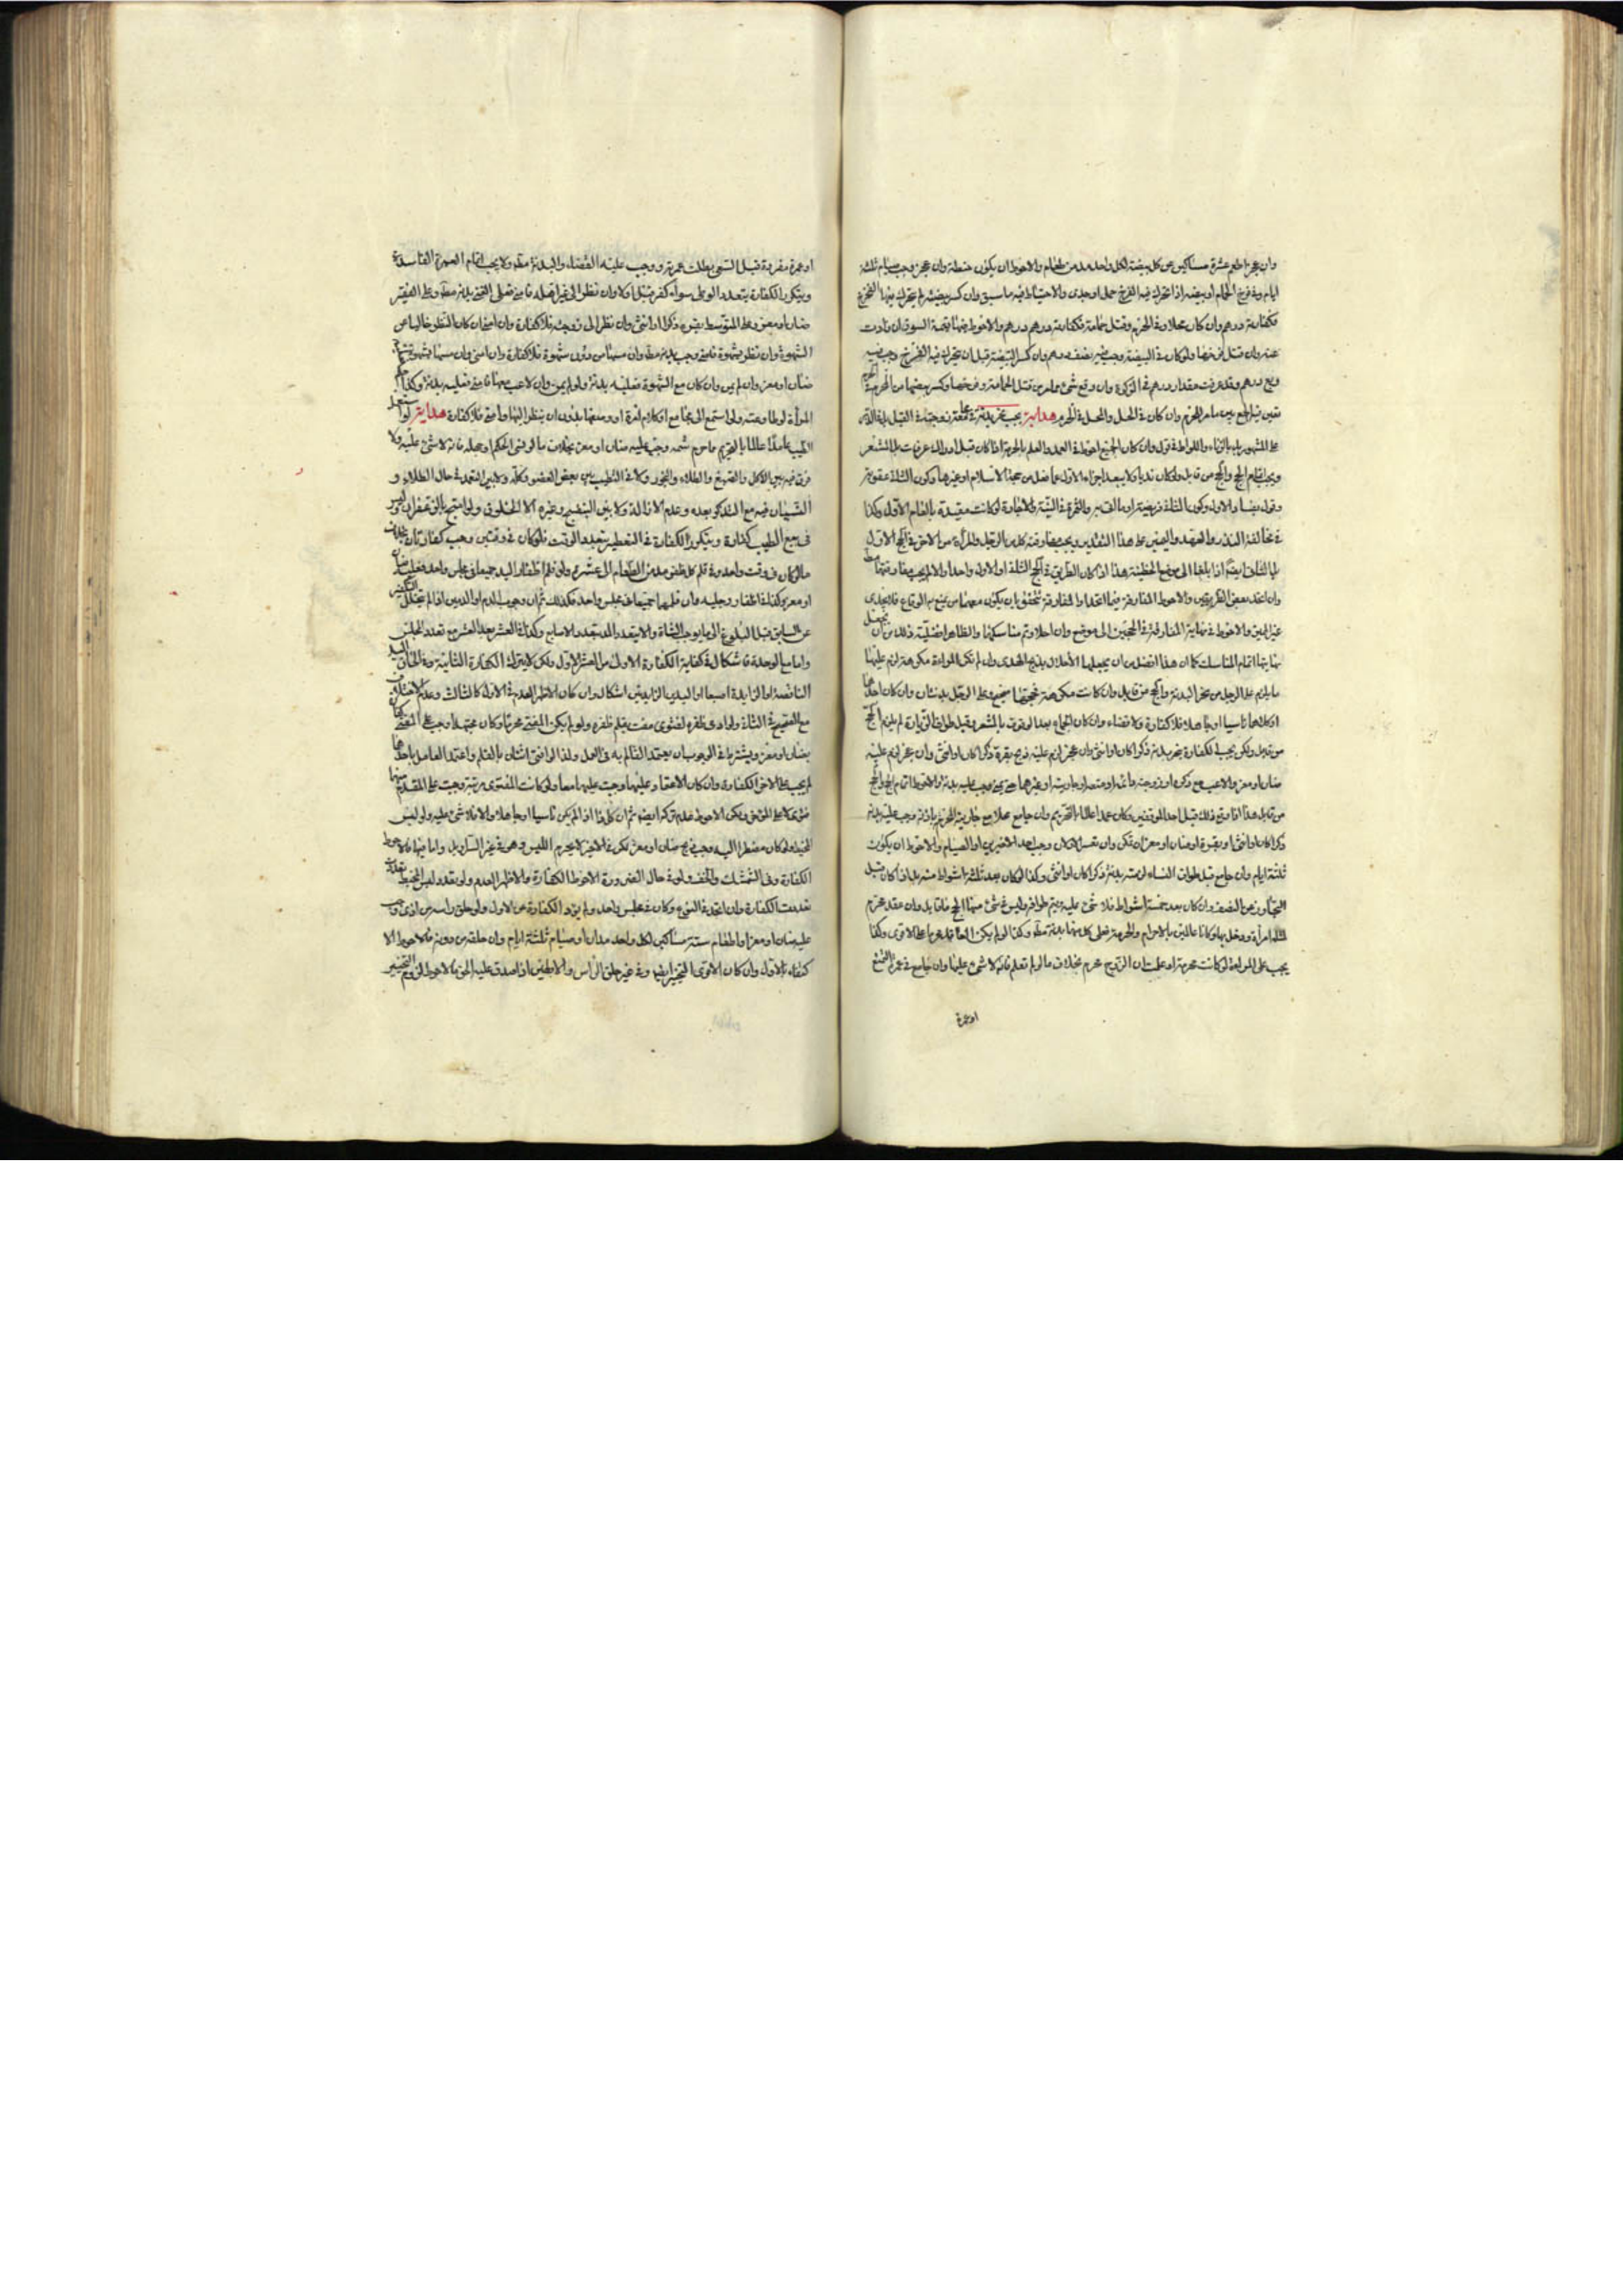 وان عجز اطعم عشرة مساكين عن كل بيضة لكل واحد مد من الطعام والاحوط ان يكون حنطة وان عجز وجب صيام ثلثة
ايام وفي فرخ الحمام او بيضه اذا تحرك فيه الفرخ حمل او جدى والاحتياط فيه ما سبق وان كسر بيضته لم يتحرك فيها الفرخ
فكفارته درهم وان كان محلا في الحرم وقتل حمامة فكفارته درهم والاحوط فيها قيمة السوق ان زادت
عنه وان قتل فرخها ولو كان في البيضة وجب نصف درهم وان كسر البيضة قبل ان يتحرك فيه الفرخ وجب فيه
ربع درهم وقد عرفت مقدار درهم في الزكوة وان وقع شئ مما مر من قتل الحمامة وفرخها وكسر بيضها من المحرم في الحرم
تعين فيه الجمع بين ما مر للمحرم وان كان في الحل والمحل في الحرم هداية يجب نحر بدنة في جماع زوجته في القبل بل في الدبر
على المشهور بل بالزناء واللواط في قول وان كان الجميع احوط مع العمد والعلم بالحرمة اذا كان قبل ادراك عرفات بل المشعر
ويجب اتمام الحج والحج من قابل ولو كان ندبا ولا يبعد اجزاء الاول عما فعل من حجة الاسلام او غيرها وكون الثاني عقوبة
في مخالفة النذر والعهد واليمين على هذا التقدير ويجب مفارقة كل من الرجل والمرأة من الاخر في الحج الاول
بل الثاني ايضا اذا بلغا الى موضع الخطيئة هذا اذا كان الطريق في الحج الثاني والاول واحدا والا لم يجب مفارقتهما
وان اتحد بعض الطريقين والاحوط المفارقة فيما اتحدا والمفارقة تتحقق بان يكون معهما من يمنع من الوقاع فلا يجدى
غير المميز والاحوط في نهاية المفارقة في الحجين الى موضع وان احلا وتم مناسكهما والظاهر افضلية ذلك من ان يجعل
نهايتها اتمام المناسك كما ان هذا افضل من ان يجعلها الاحلال بذبح الهدى وان لم تكن المراة مكرهة لزم عليها
ما يلزم على الرجل من نحر البدنة والحج من قابل وان كانت مكرهة فحجتها صحيح وعلى الرجل بدنتان وان كان احدهما
او كلاهما ناسيا او جاهلا فلا كفارة ولا قضاء وان كان الجماع بعد الوقوف بالمشعر وقبل طواف الزيارة لم يلزم الحج
من قابل ولكن يجب الكفارة بنحر بدنة ذكرا كان او انثى وان عجز لزم عليه ذبح بقرة ذكرا كان او انثى وان عجز لزم عليه
ضان او معز ولا عبث مع ذكره او زوجته او جاريته او غيرها حتى يمنى وجب عليه بدنة والاحوط اتمام الحج والحج
من قابل هذا اذا وقع ذلك قبل احد الموقفين وكان عمدا عالما بالتحريم وان جامع محلا مع جارية المحرم باذنه وجب عليه بدنة
ذكرا كان او انثى او بقرة او ضان او معز ان تمكن وان تعسر الاولان وجب احد الاخيرين او الصيام والاحوط ان يكون
ثلثة ايام وان جامع قبل طواف النساء لزمته بدنة ذكرا كان او انثى وكذا لو كان بعد ثلثة اشواط منه بل اذا كان قبل
التجاوز عن النصف وان كان بعد خمسة اشواط فلا شئ عليه ويتم طوافه وليس في شئ منها الحج من قابل وان عقد محرم
لمثله امرأة ودخل بها وكانا عالمين بالاحرام والحرمة فعلى كل منهما بدنة مطلقا وكذا لو لم يكن العاقد محرما على الاقوى وكذا
يجب على المراة لو كانت محرمة او علمت ان الزوج محرم بخلاف ما لو لم تعلم فانه لا شئ عليها وان جامع في عمرة التمتع
او عمرة
او عمرة مفردة قبل السعى بطلت عمرته ووجب عليه القضاء والبدنة مطلقا ولا يجب اتمام العمرة الفاسدة
ويتكرر الكفارة بتعدد الوطى سواء كفر قبل او لا وان نظر الى غير اهله فامنى فعلى الغنى بدنة مطلقا وعلى الفقير
ضان او معز وعلى المتوسط بقرة ذكرا او انثى وان نظر الى زوجته فلا كفارة وان امنى ان كان النظر خاليا عن
الشهوة وان نظر بشهوة فامنى وجب بدنة مطلقا وان مسها من دون شهوة فلا كفارة وان امنى وان مسها بشهوة
ضان او معز وان لم يمن وان كان مع الشهوة فعليه بدنة ولو لم يمن وان لاعب معها فامنى فعليه بدنة وكذا على
المرأة لو طاوعته ولو استمع الى مجامع او كلام امرة او وصفها بدون ان ينظر اليها وامنى فلا كفارة هداية لو استعمل
الطيب عامدا عالما بالتحريم مما حرم شمه وجب عليه ضان او معز بخلاف ما لو نسى الحكم او جهله فانه لا شئ عليه ولا
فرق فيه بين الاكل والصبغ والطلاء والبخور ولا في التطيب بين بعض العضو وكله ولا بين المتعمد في حال الطلاء و
النسيان فيه مع التذكر بعده وعدم الازالة ولا بين البنفسج وغيره الا الخلوق ولو امتزج بالزعفران وليس
في بيع الطيب كفارة ويتكرر الكفارة في التعطير بتعدد الوقت فلو كان في وقتين وجب كفارتان بخلاف
ما لو كان في وقت واحد وفي قلم كل ظفر مد من الطعام الى عشرة ولو قلم اظفار اليد جميعا في مجلس واحد فعليه ضان
او معز وكذا في اظفار رجليه وان قلمها جميعا في مجلس واحد فكذلك ثم ان وجوب الدم او الدمين اذا لم يتخلل التكفير
عن السابق قبل البلوغ الى ما يوجب الشاة والا يتعدد المد بتعدد الاصابع وكذا في العشر بعد العشر مع تعدد المجلس
واما مع الوحدة فاشكال في كفاية الكفارة الاولى من العشر الاول ولكن لا يترك الكفارة الثانية وفي الحاق اليد
الناقصة او الزايدة اصبعا او اليدين الزايدتين اشكال وان كان الاظهر العدم في الاول كالثالث وعدم الاختلاف
مع الصحيح في الثاني ولو ادمى ظفره لفتوى مفت بقلم ظفره ولو لم يكن المفتى محرما وكان مجتهدا وجب على المفتى
بضان او معز ويشترط في الوجوب ان يعتمد القالم به في العمل ولذا لو افتى اثنان بالقلم واعتمد العامل باحدهما
لم يجب على الاخر الكفارة وان كان الاعتماد عليهما وجبت عليهما معا ولو كانت الفتوى مرتبة وجبت على المقدم منهما
فتوى لا على المؤخر ولكن الاحوط عدم تركه ايضا ثم ان كل هذا اذا لم يكن ناسيا او جاهلا والا فلا شئ عليه ولو لبس
المخيط ولو كان مضطرا اليه وجب ذبح ضان او معز لكن في الاخير لا يحرم اللبس وهو في غير السراويل واما فيها فالاحوط
الكفارة وفي الشمشك والخف ولو في حال الضرورة الاحوط الكفارة والاظهر العدم ولو تعدد لبس المخيط
تعددت الكفارة وان اتحد في النوع وكان في مجلس واحد ولم يؤد الكفارة عن الاول ولو حلق راسه من اذى وجب
عليه ضان او معز او اطعام ستة مساكين لكل واحد مدان او صيام ثلثة ايام وان حلقه من دونه فالاحوط الا
كتفاء بالاول وان كان الاقوى التخيير ايضا وفي غير حلق الراس والابطين اذا صدق عليه الحلق فالاحوط لزوم التخيير